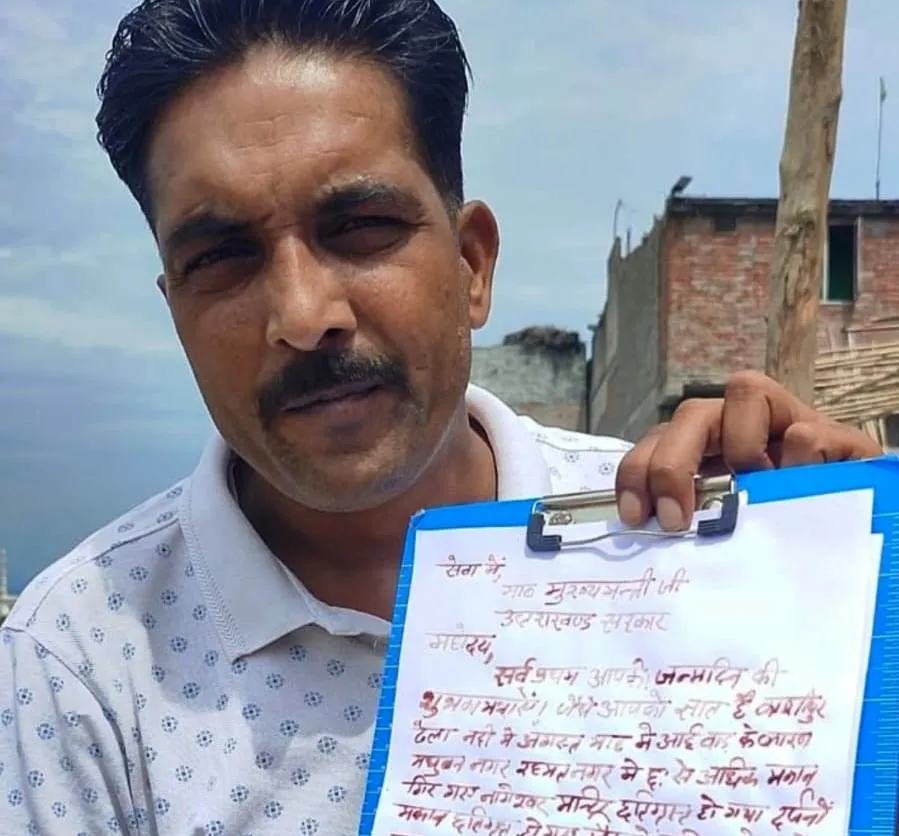 सेवा में,
मा० मुख्यमन्त्री जी
उत्तराखण्ड सरकार
महोदय,
सर्व प्रथम आपको जन्मदिन की
शुभकामनाऐं। जैसे आपको ज्ञात है काशीपुर
ढेला नदी में अगस्त माह में आई बाढ़ के कारण
मधुबन नगर रहमत नगर में छः से अधिक मकान
गिर गए नागेश्वर मन्दिर छतिग्रस्त हो गया दर्जनों
मकान छतिग्रस्त हो गए